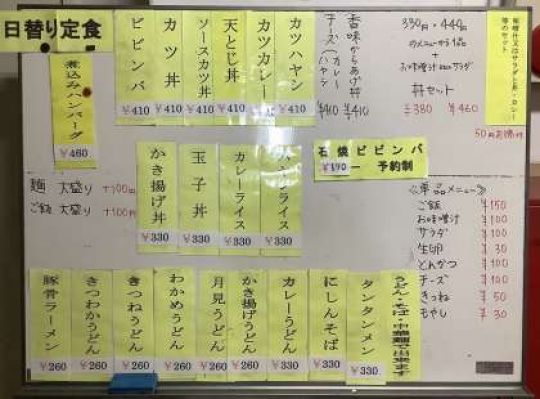 日替り定食
煮込みハンバーグ
¥460
ビビンバ
¥410
カツ丼
¥410
ソースカツ丼
¥410
天とじ丼
¥410
カツカレー
¥410
カツハヤシ
¥410
香味からあげ丼
¥410
チーズ(カレー
ハヤシ
¥410
330円・440円
のメニューから1品
+
お味噌汁 サラダ
丼セット
¥380 ¥460
等のセット
50円お得!!
麺 大盛り +100円
ご飯 大盛り +100円
かき揚げ丼
¥330
玉子丼
¥330
カレーライス
¥330
ハヤシライス
¥330
石焼ビビンバ
予約制
≪単品メニュー≫
ご飯 ¥150
お味噌汁 ¥100
サラダ ¥100
生卵 ¥30
とんかつ ¥100
チーズ ¥100
きつね ¥50
もやし ¥30
豚骨ラーメン
¥260
きつわかうどん
¥260
きつねうどん
¥260
わかめうどん
¥260
月見うどん
¥260
かき揚げうどん
¥260
カレーうどん
¥330
にしんそば
¥330
タンタンメン
¥330
うどん・そば・中華麺で出来ます